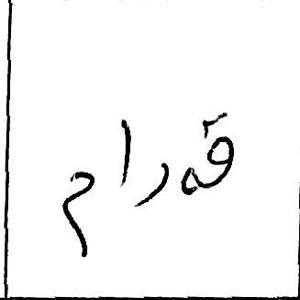 قهرام